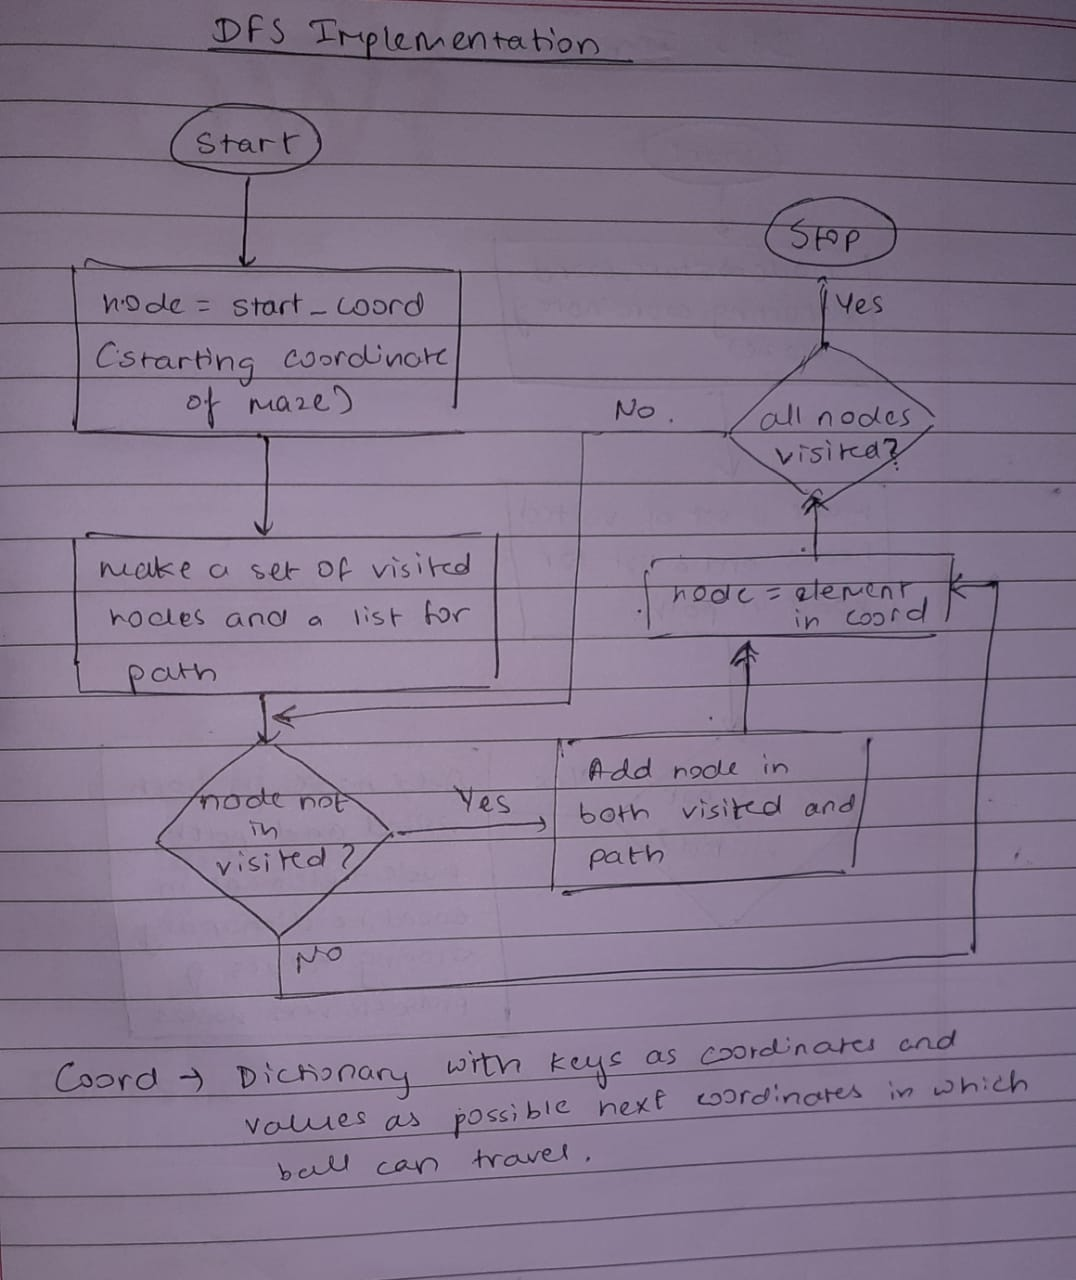 DFS Implementation
Start
node = start_coord
(starting coordinate
of maze)
make a set of visited
nodes and a list for
path
node not
in
visited?
Yes
No
Add node in
both visited and
path
node = element
in coord
all nodes
visited?
No.
Yes
Stop
Coord → Dictionary with keys as coordinates and
values as possible next coordinates in which
ball can travel.